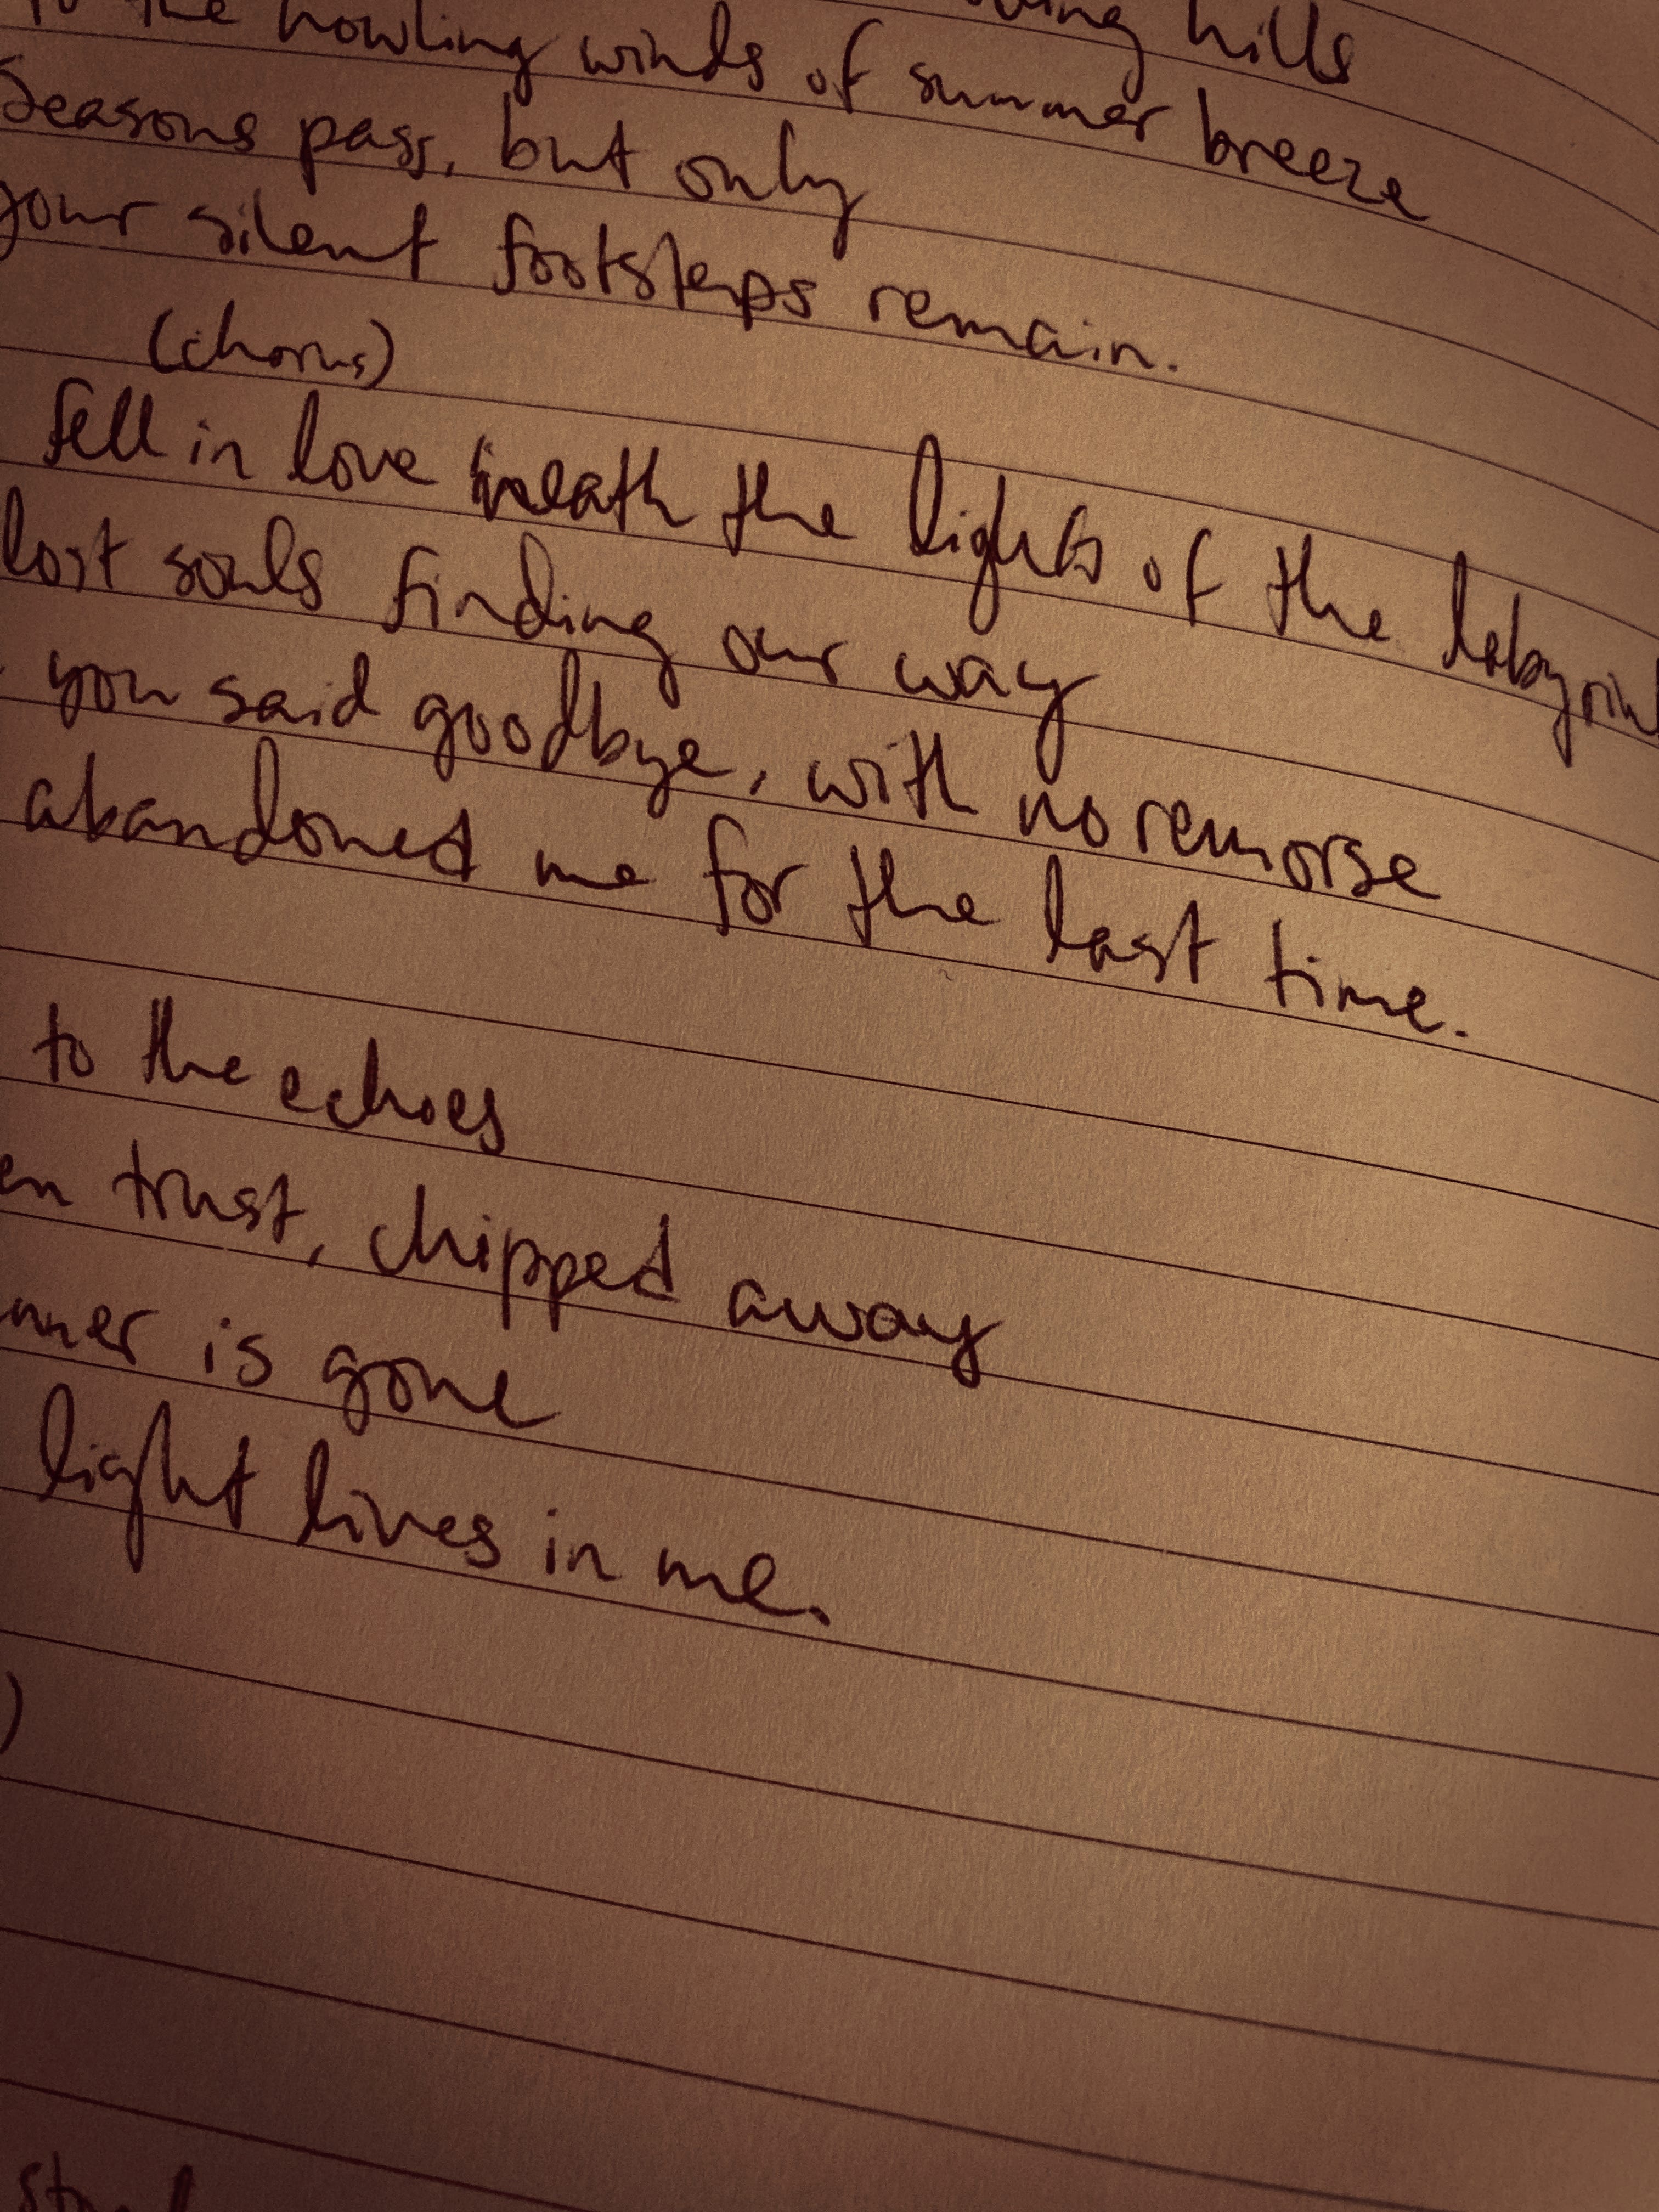 hills
the howling winds of summer breeze
Seasons pass, but only
your silent footsteps remain.
(chorus)
fell in love neath the lights of the
lost souls finding our way
you said goodbye, with no remorse
abandoned me for the last time.
to the echoes
trust, chipped away
is gone
light lives in me.
)